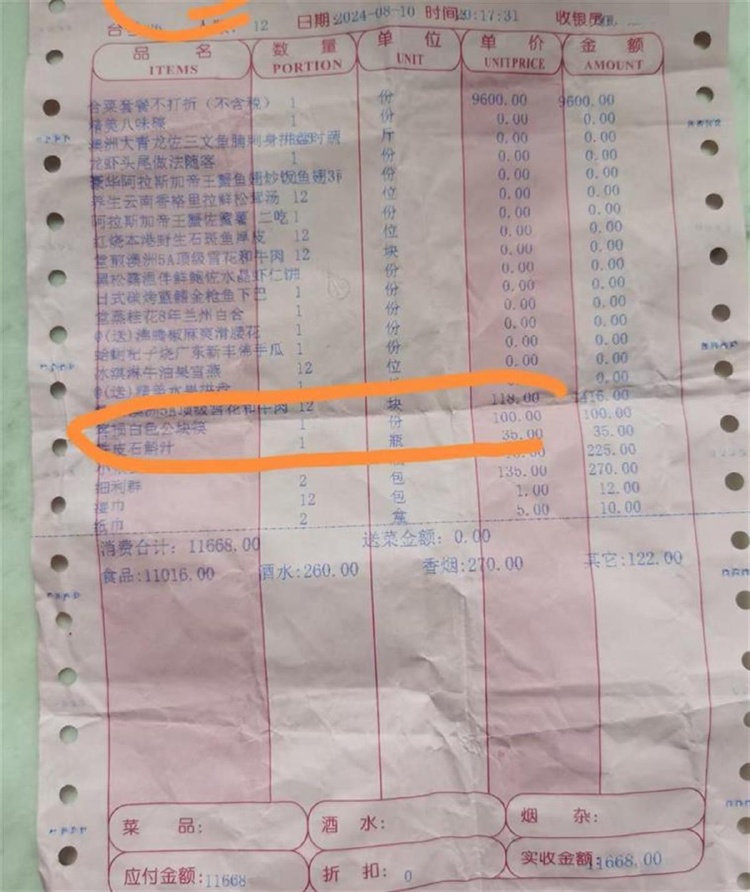 日期:2024-08-10 时间20:17:31 收银员
12
品名 数量 单位 单价 金额
ITEMS PORTION UNIT UNITPRICE AMOUNT
合菜套餐不打折（不含税） 1 份 9600.00 9600.00
精美八味碟 1 份 0.00 0.00
澳洲大青龙佐三文鱼腩刺身拼盘时蔬 斤 0.00 0.00
龙虾头尾做法随客 1 份 0.00 0.00
豪华阿拉斯加帝王蟹鱼翅炒饭鱼翅3 份 0.00 0.00
养生云南香格里拉鲜松茸汤 12 位 0.00 0.00
阿拉斯加帝王蟹佐蜜薯 二吃 1 份 0.00 0.00
红烧本港野生石斑鱼厚皮 12 位 0.00 0.00
堂煎澳洲5A顶级雪花和牛肉 12 块 0.00 0.00
黑松露酒伴鲜鲍佐水晶虾仁饼 份 0.00 0.00
日式碳烤蓝鳍金枪鱼下巴 1 份 0.00 0.00
堂蒸桂花8年兰州百合 1 份 0.00 0.00
(送)沸腾椒麻爽滑腰花 1 份 0.00 0.00
烧广东新丰佛手瓜 1 份 0.00 0.00
冰淇淋牛油果官燕 12 位 0.00 0.00
(送)精美水果拼盘 1 0.00 0.00
澳洲5A顶级雪花和牛肉 12 块 118.00 1416.00
白色公块筷 1 份 100.00 100.00
皮石斛汁 1 瓶 35.00 35.00
225.00
细利群 2 包 135.00 270.00
湿巾 12 包 1.00 12.00
纸巾 2 盒 5.00 10.00
消费合计: 11668.00 送菜金额: 0.00
食品:11016.00 酒水:260.00 香烟:270.00 其它:122.00
菜品: 酒水: 烟杂:
应付金额:11668 折扣: 0 实收金额:11668.00